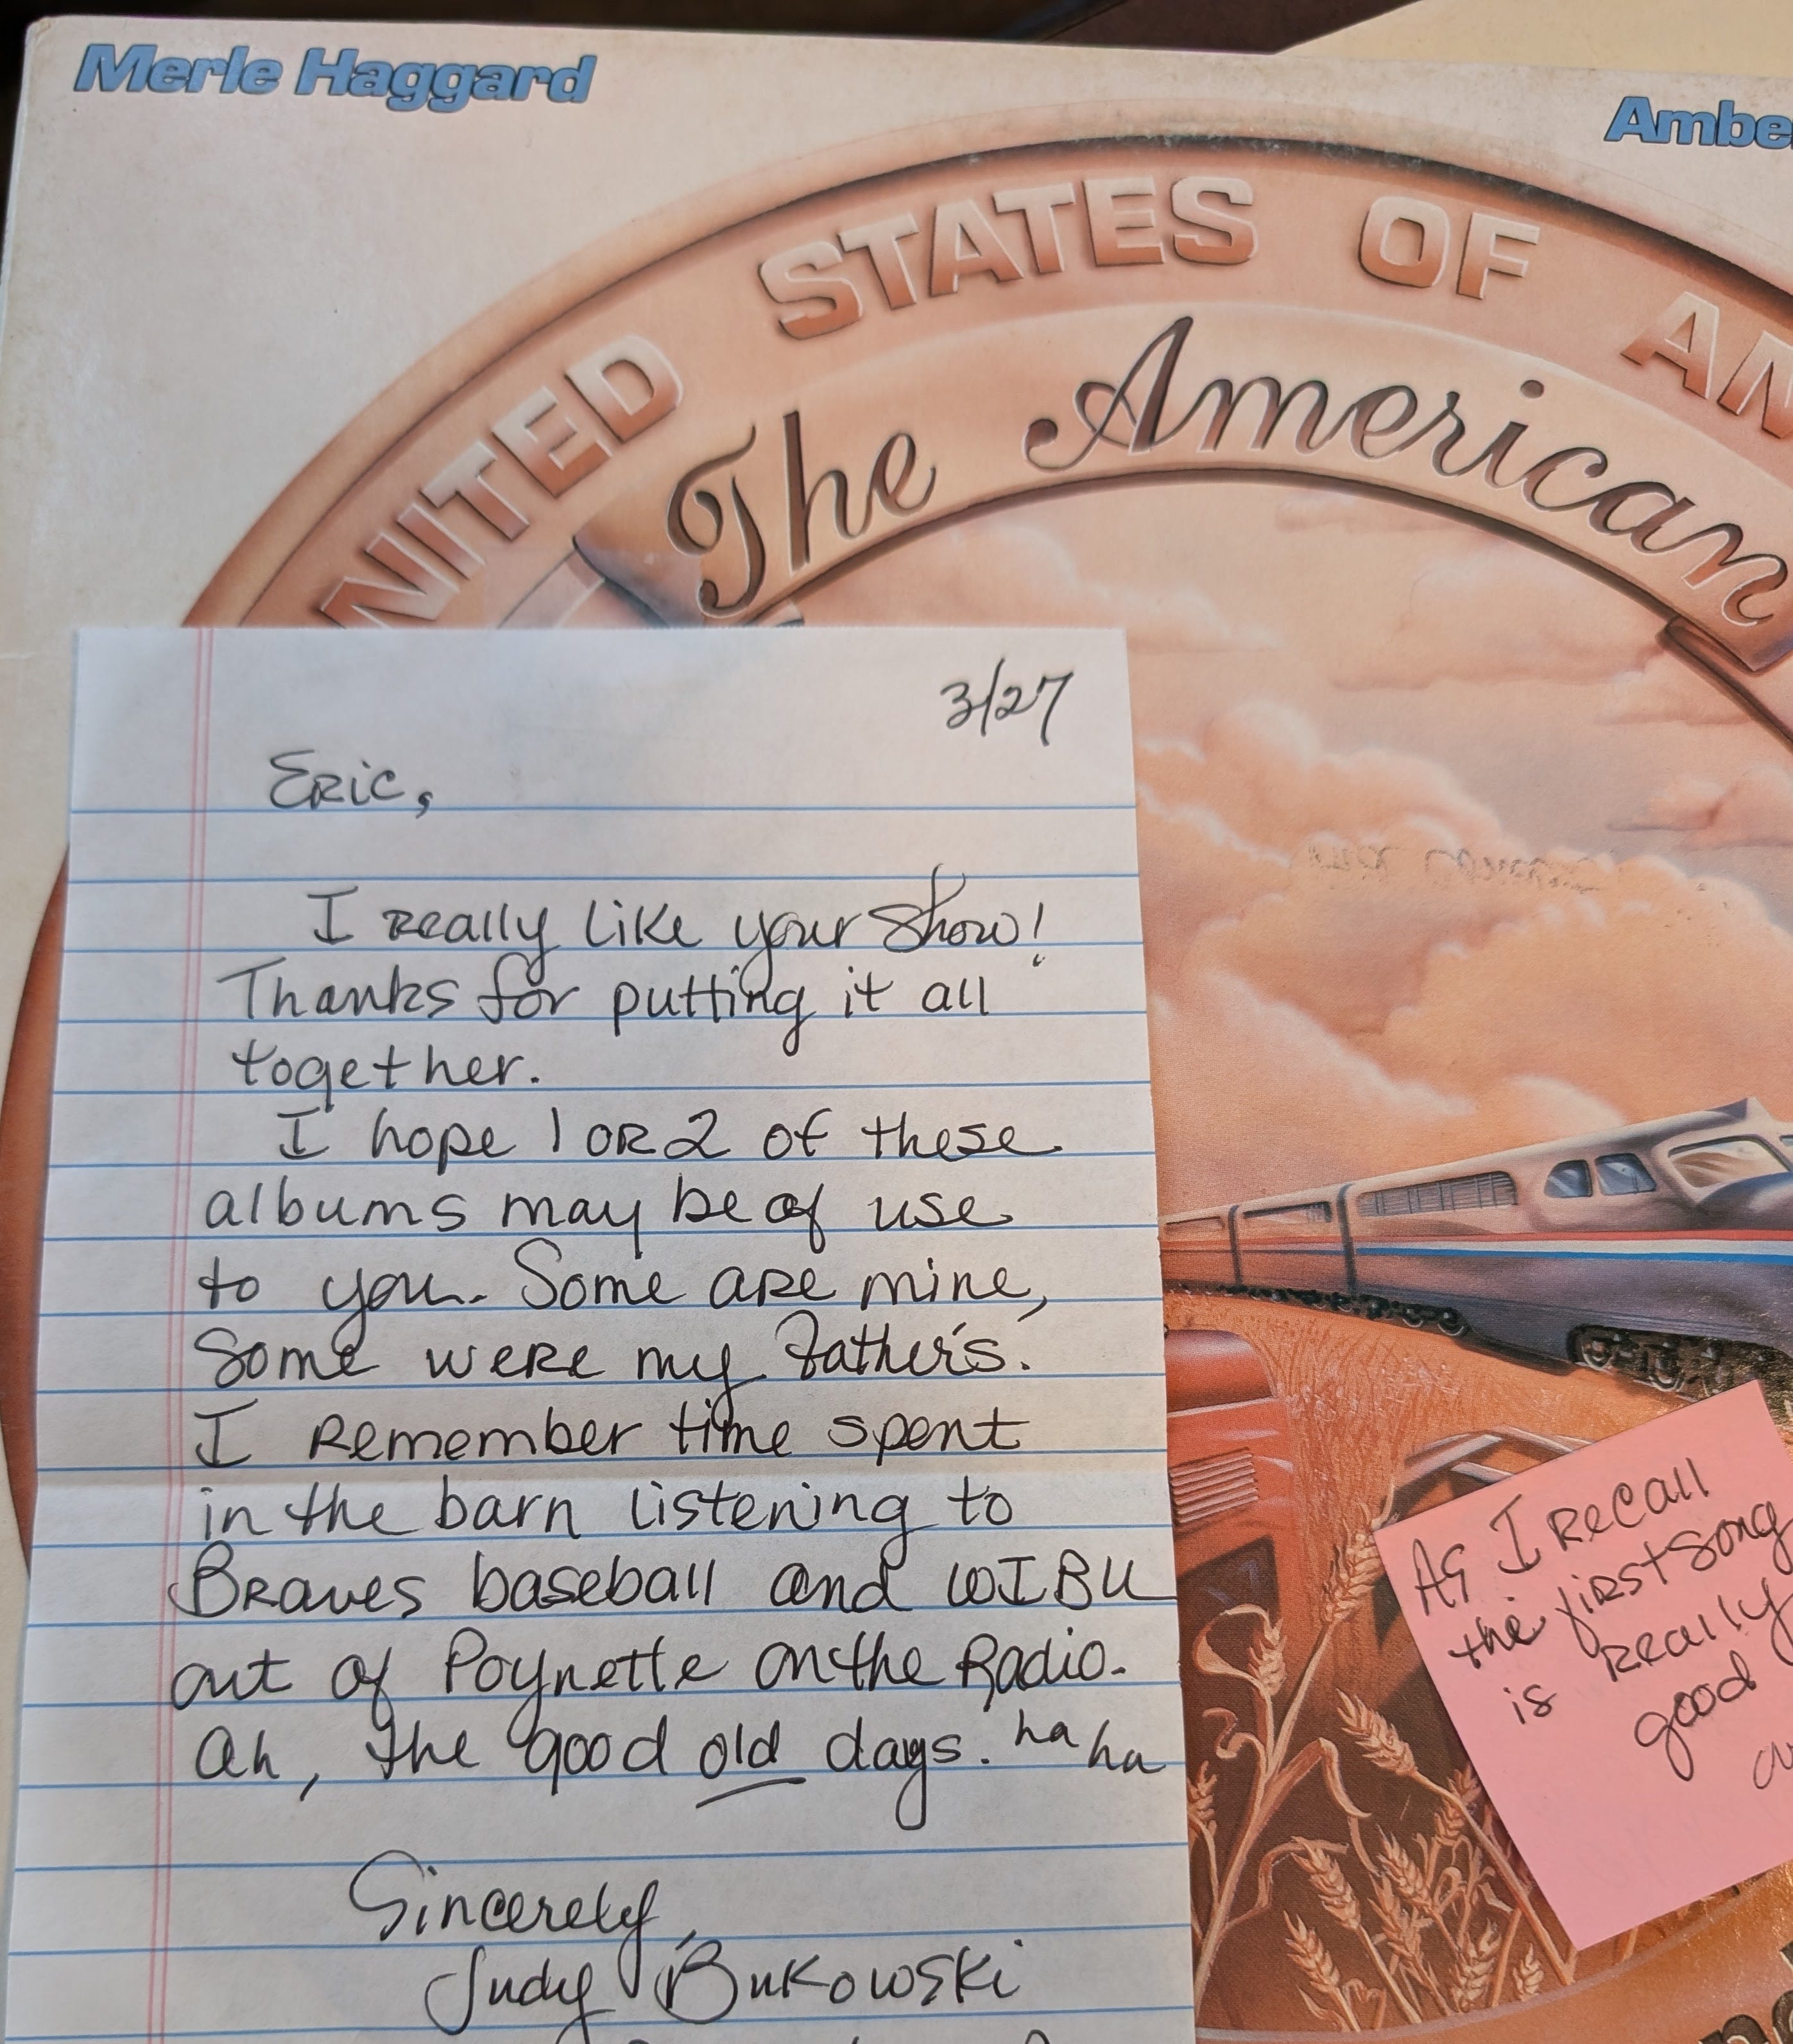 Merle Haggard
Amber
UNITED STATES OF AM
The American
3/27
Eric,
I really like your show!
Thanks for putting it all
together.
I hope 1 or 2 of these
albums may be of use
to you. Some are mine,
Some were my father's.
I remember time spent
in the barn listening to
Braves baseball and WIBU
out of Poynette on the Radio.
Ah, the good old days. ha ha
Sincerely,
Judy Bukowski
As I Recall
the first song
is really
good